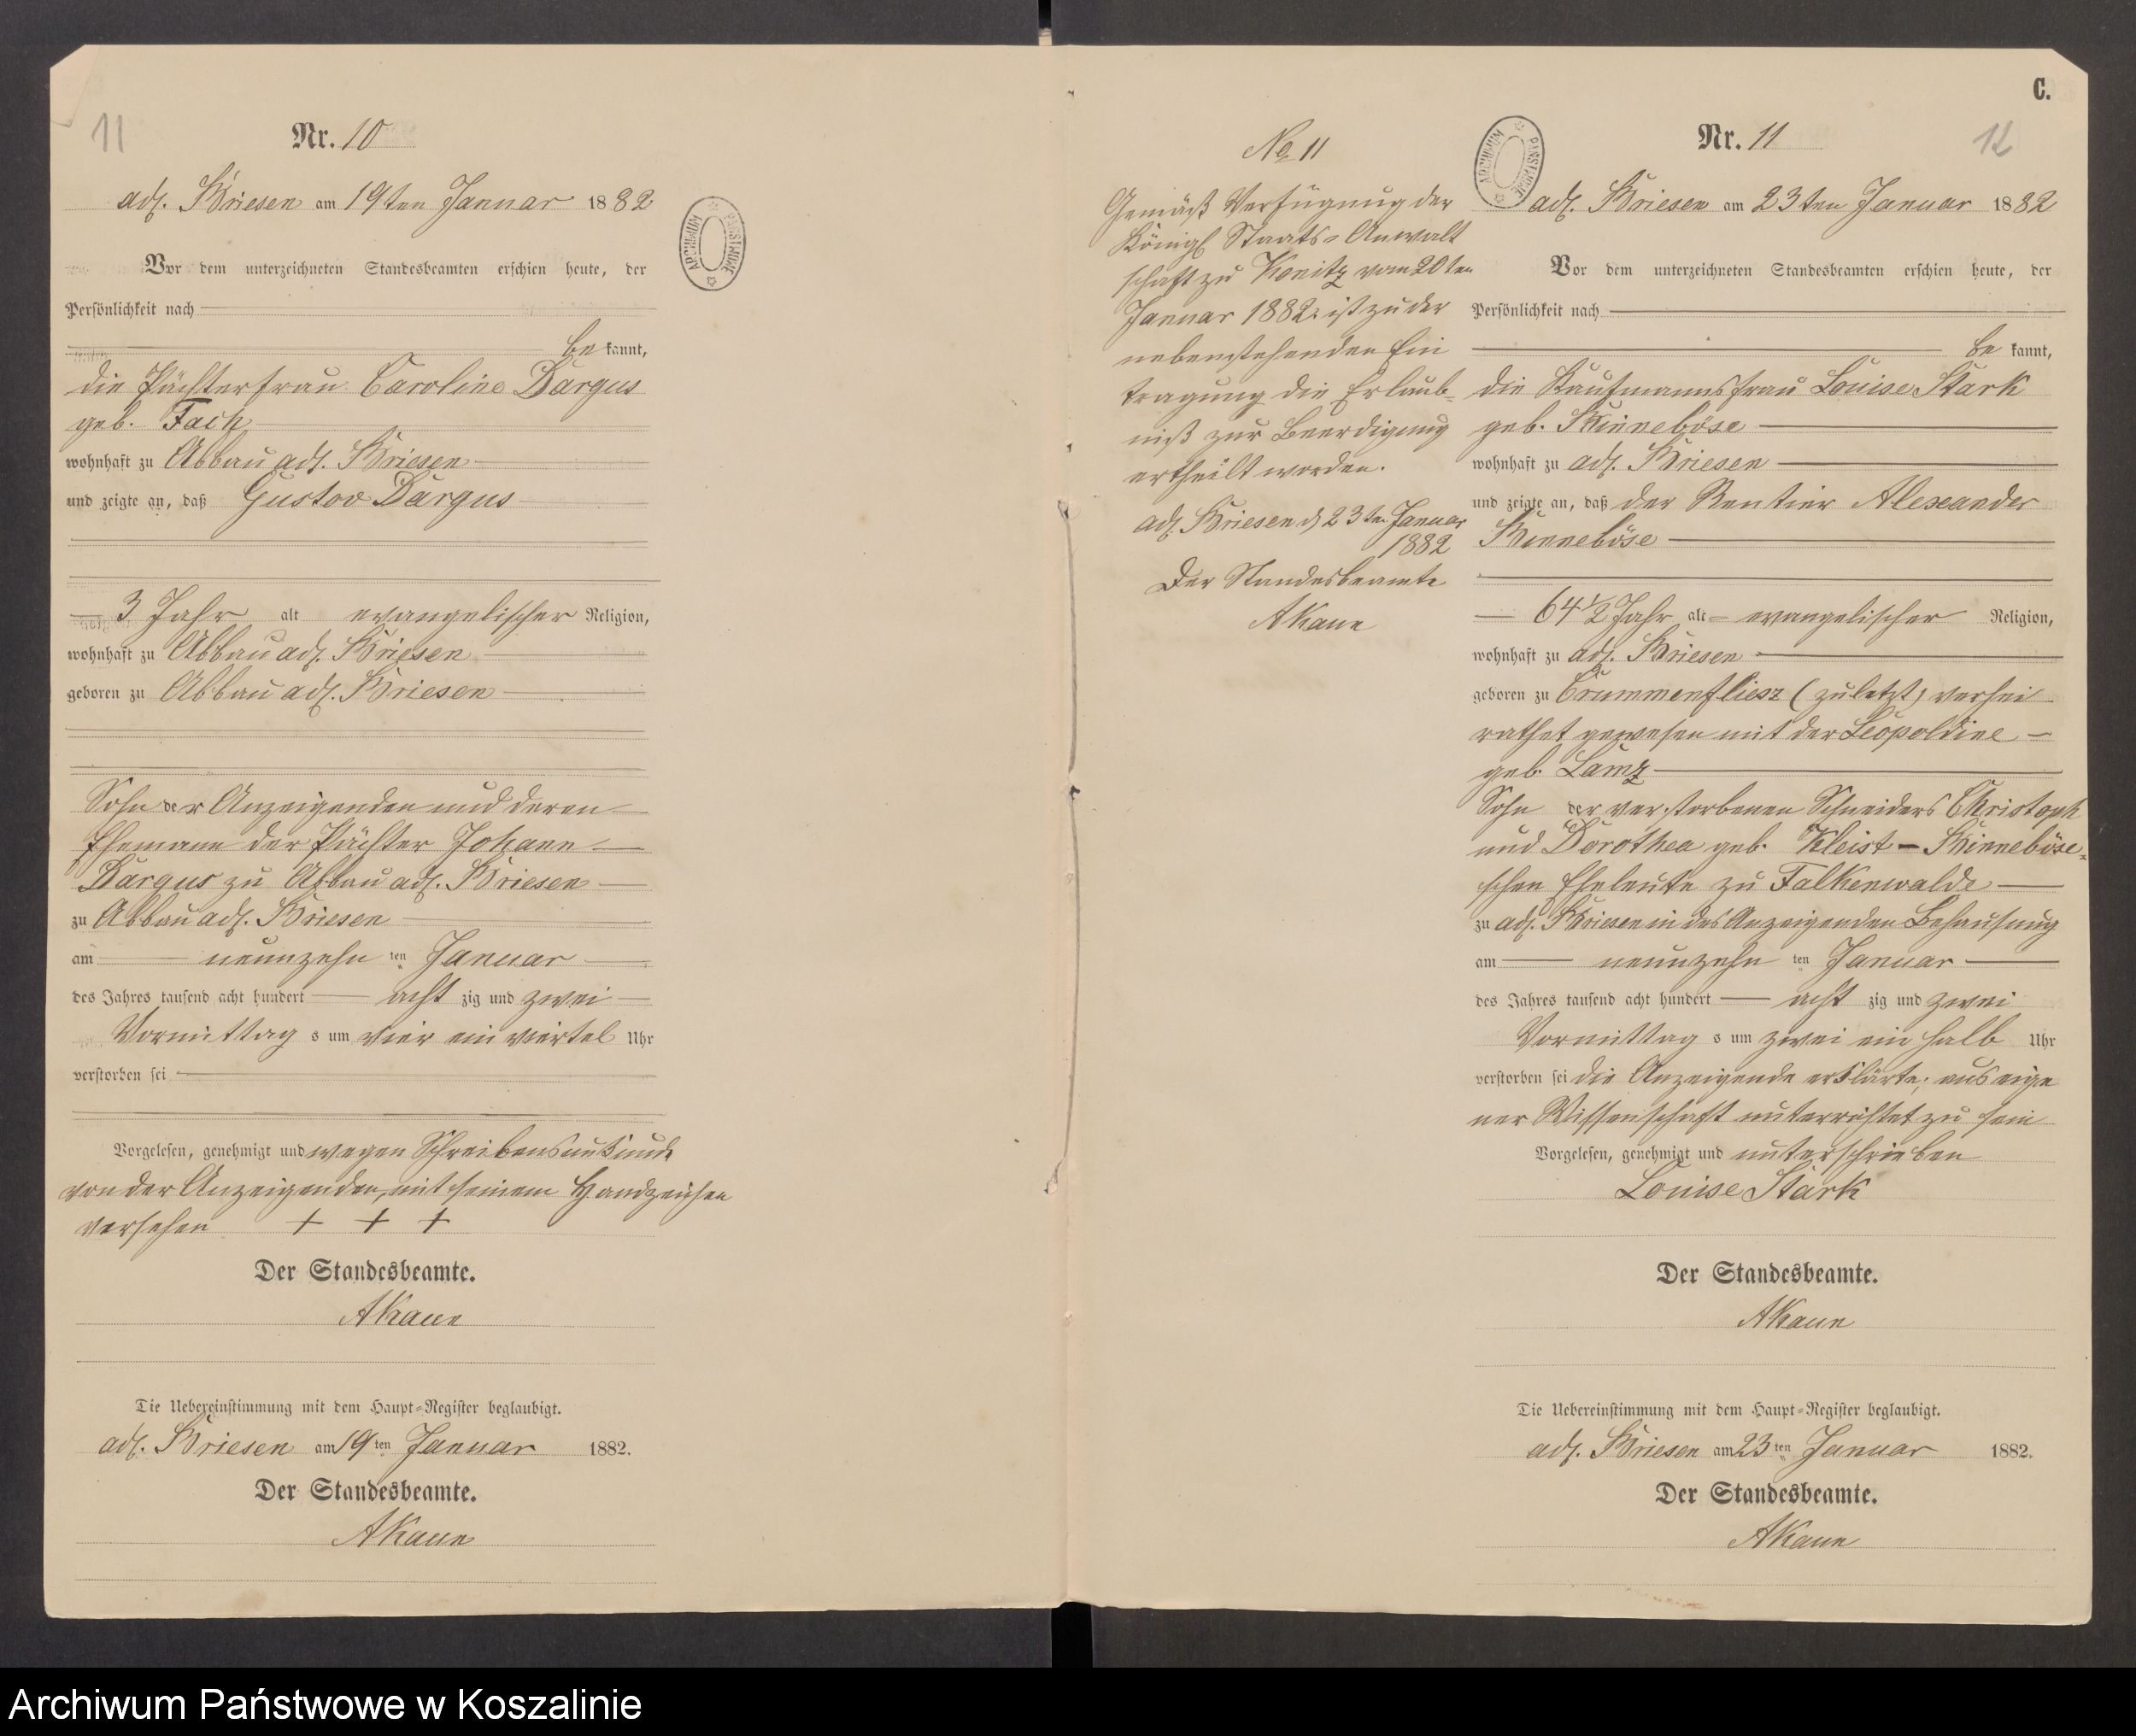 11
Nr. 10
adl. Briesen am 19ten Januar 1882
Vor dem unterzeichneten Standesbeamten erschien heute, der
Persönlichkeit nach
be kannt,
die Pächterfrau Caroline Dargus
geb.
wohnhaft zu Abbau adl. Briesen
und zeigte an, daß Gustav Dargus
3 Jahr alt evangelischer Religion,
wohnhaft zu Abbau adl. Briesen
geboren zu Abbau adl. Briesen
Sohn der Anzeigenden und deren
Ehemann der Pächter Johann
Dargus zu Abbau adl. Briesen
zu Abbau adl. Briesen
am neunzehn ten Januar
des Jahres tausend acht hundert acht zig und zwei
Vormittag s um vier ein viertel Uhr
verstorben sei
Vorgelesen, genehmigt und wegen Schreibensunkunde
von der Anzeigenden mit seinem Handzeichen
versehen + + +
Der Standesbeamte.
AKaun
Die Uebereinstimmung mit dem Haupt-Register beglaubigt.
adl. Briesen am 19ten Januar 1882.
Der Standesbeamte.
AKaun
ARCHIWUM PAŃSTWOWE
No 11
Gemäß Verfügung der
Königl Staats-Anwalt
schaft zu Konitz vom 20ten
Januar 1882 ist zu der
nebenstehenden Ein
tragung die Erlaub-
niß zur Beerdigung
ertheilt worden.
adl. Briesen d 23ten Januar
1882
Der Standesbeamte
AKaun
ARCHIWUM PAŃSTWOWE
C.
Nr. 11
12
adl. Briesen am 23ten Januar 1882
Vor dem unterzeichneten Standesbeamten erschien heute, der
Persönlichkeit nach
be kannt,
die Kaufmannsfrau Louise Stark
geb. Binneböse
wohnhaft zu adl. Briesen
und zeigte an, daß der Rentier Alexander
Binneböse
64 1/2 Jahr alt evangelischer Religion,
wohnhaft zu adl. Briesen
geboren zu Crummenfliesz (zuletzt) verhei
rathet gewesen mit der Leopoldine
geb. Lamz
Sohn der verstorbenen Schneiders Christoph
und Dorothea geb. Kleist - Binneböse-
schen Eheleute zu Falkenwalde
zu adl. Briesen in des Anzeigenden Behausung
am neunzehn ten Januar
des Jahres tausend acht hundert acht zig und zwei
Vormittag s um zwei ein halb Uhr
verstorben sei die Anzeigende erklärte, aus eige
ner Wissenschaft unterrichtet zu sein
Vorgelesen, genehmigt und unterschrieben
Louise Stark
Der Standesbeamte.
AKaun
Die Uebereinstimmung mit dem Haupt-Register beglaubigt.
adl. Briesen am 23ten Januar 1882.
Der Standesbeamte.
AKaun
Archiwum Państwowe w Koszalinie